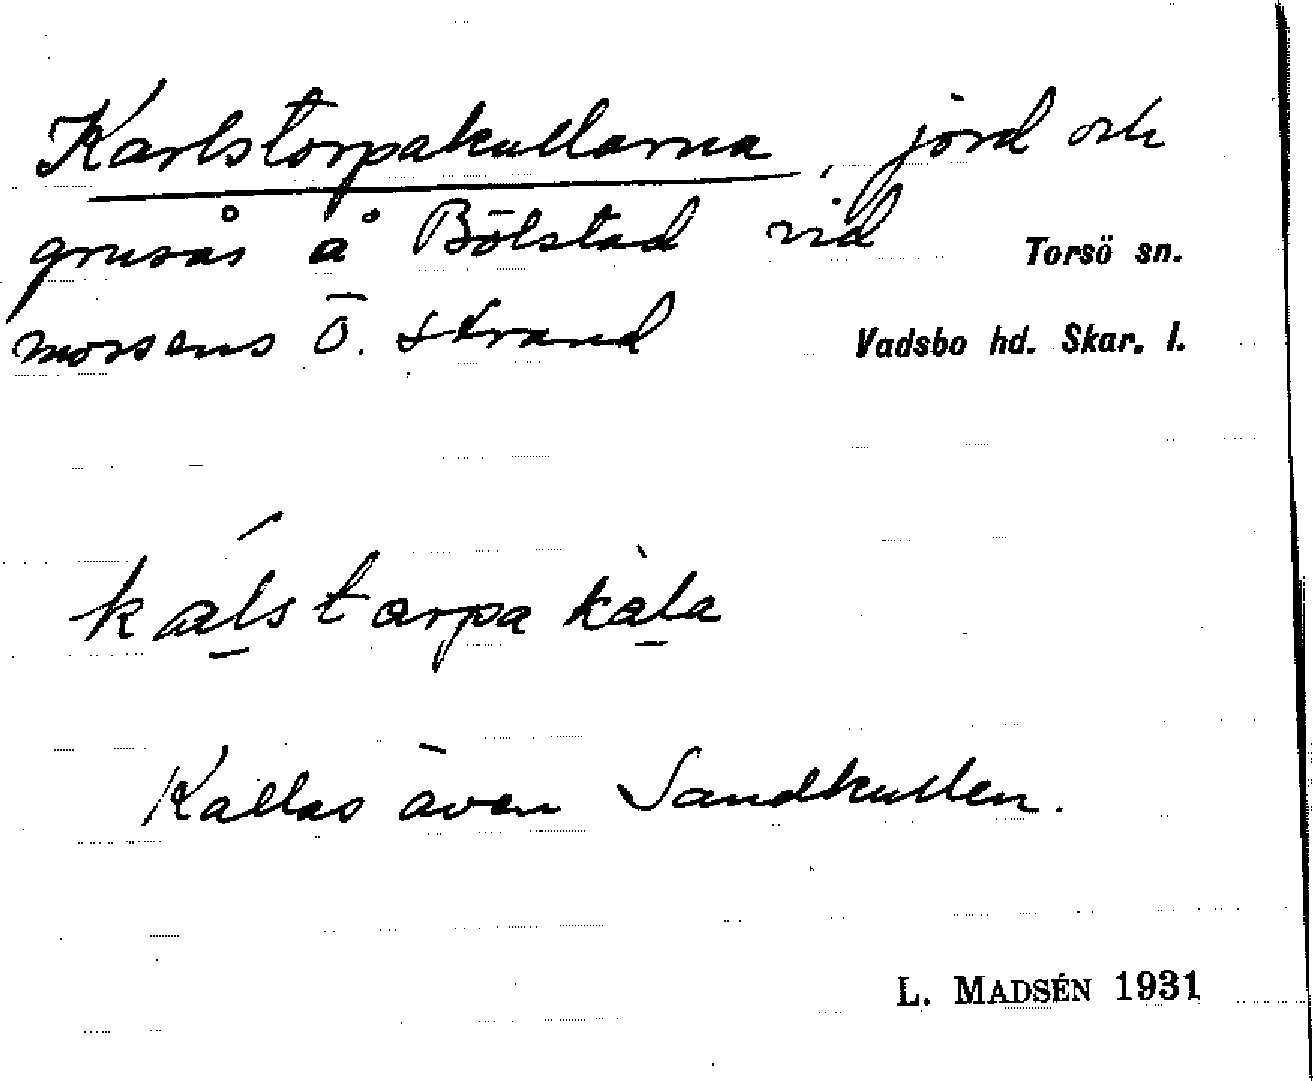 Karlstorpakullarna, jord och
grusås å Bölstad vid
Torsö sn.
mossens Ö. strand
Vadsbo hd. Skar. l.
kálstarpa kàla
Kallas även Sandkullen.
L. MADSÉN 1931